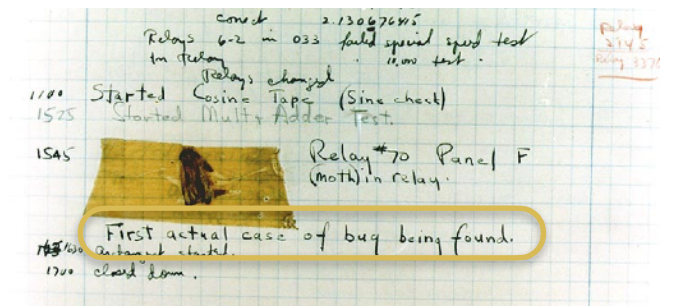 conect 2.130676415
Relays 6-2 in 033 failed special speed test
In Relay 10,000 test.
Relays changed
Relay
2145
Relay 3370
1100 Started Cosine Tape (Sine check)
1525 Started Mult+ Adder Test.
1545 Relay #70 Panel F
(moth) in relay.
First actual case of bug being found.
1630 antangent started.
1700 closed down.